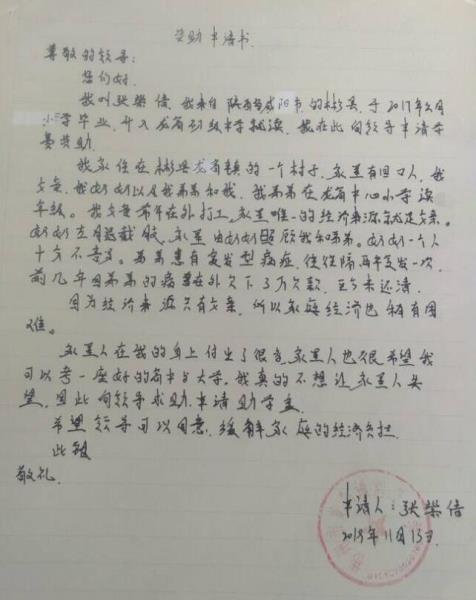 资助申请书
尊敬的领导:
您们好.
我叫张柴倍,我来自陕西省咸阳市的彬县,于2017年6月
小学毕业,升入龙高初级中学就读,我在此向领导申请
助.
我家住在彬县龙高镇的一个村子,家里有四口人,我
父亲,我奶奶以及我弟弟和我,我弟弟在龙高中心小学读
年级。我父亲常年在外打工,家里唯一的经济来源就是父亲。
奶奶左肢,家里由奶奶照顾我和弟弟。奶奶一个人
十分不容易。弟弟患有复发型病症,往往隔两年复发一次,
前几年因弟弟的病在外欠下3万欠款,至今未还清.
因为经济来源只有父亲,所以家庭经济也稍有困
难。
家里人在我的身上付出了很多,家里人也很希望我
可以考一座好的高中与大学,我真的不想让家里人失
望,因此向领导求助申请助学金.
希望领导可以同意,缓解家庭的经济负担.
此致
敬礼.
申请人:张柴倍
2018年11月13日